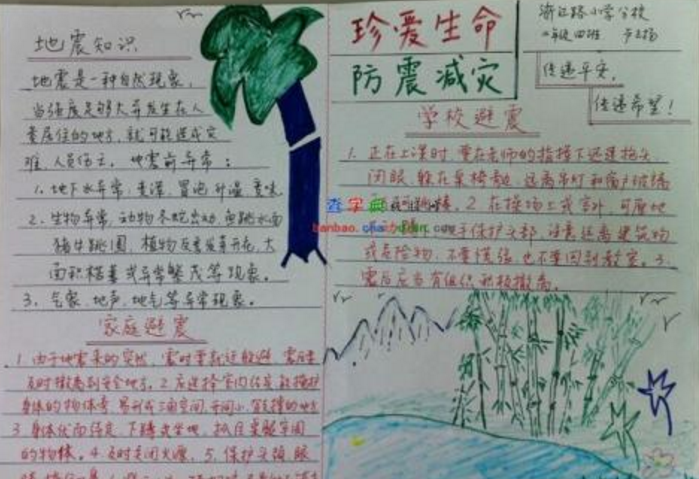 地震知识
地震是一种自然现象，
当强度足够大并发生在人
类居住的地方，就可能造成灾
难，人员伤亡。地震前异常：
1、地下水异常，变浑，冒泡，升温，变味
2、生物异常，动物冬蛇出动，鱼跳水面
猪牛跳圈，植物反季发芽开花，大
面积枯萎或异常繁茂等现象。
3、气象、地声、地气等异常现象。
家庭避震
1、由于地震来的突然，震时要就近躲避，震后要
及时撤离到安全地方。2、应选择室内结实、能掩护
身体的物体旁，易形成三角空间，开间小，有支撑的地方
3、身体伏而待定，下蹲或坐地，抓住桌腿牢固
的物体。4、及时关闭火源，5、保护头颈、眼
珍爱生命
防震减灾
浙江路小学分校
二年级四班
传递平安，
传递希望！
学校避震
1、正在上课时，要在老师的指挥下迅速抱头、
闭眼、躲在桌椅旁边，远离吊灯和窗户玻璃
2、在操场上或室外，可原地
保护头部，注意远离建筑物
或危险物，不要慌张也不要回到教室。3、
震后应当有组织积极撤离。
查字典
hanbao.chazidian.com